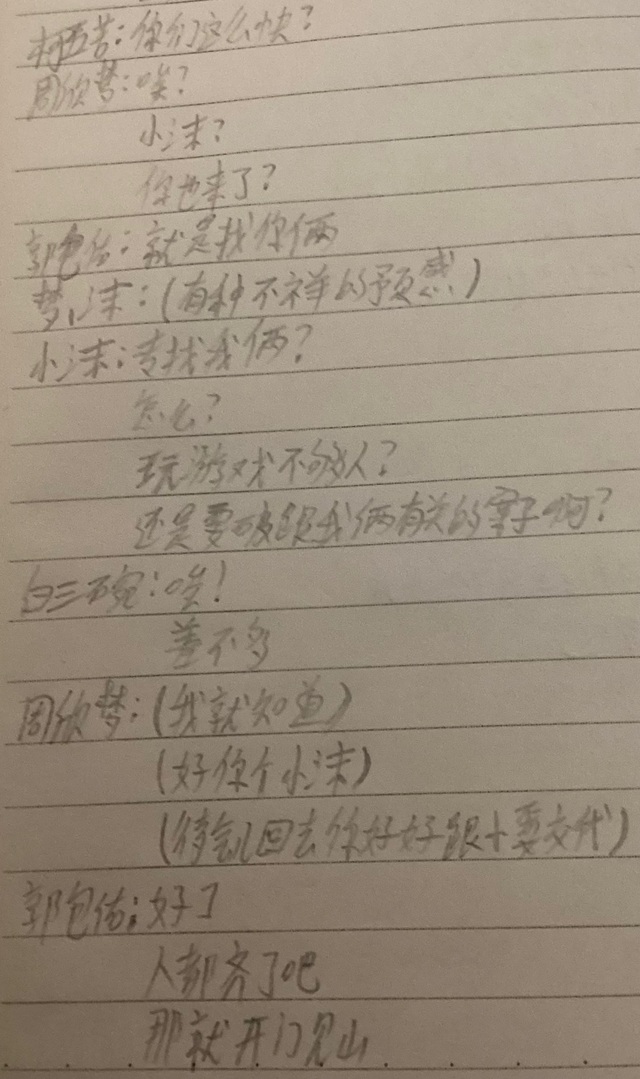 柯五苦：你们这么快？
周欣梦：唉？
小沫？
你也来了？
郭包佑：就是找你俩
梦，沫：(有种不祥的预感)
小沫：专找我俩？
怎么？
玩游戏不够人？
还是要破跟我俩有关的案子啊？
白三碗：唉！
差不多
周欣梦：(我就知道)
(好你个小沫)
(待会儿回去你好好跟十要交代)
郭包佑：好了
人都齐了吧
那就开门见山